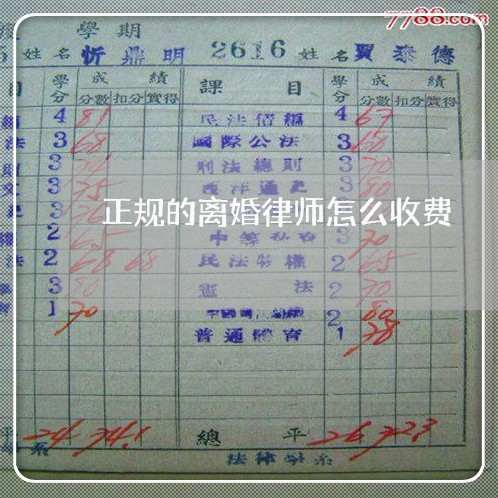 7788.com
學期
姓名 忻鼎明 2616 姓名 賈泰德
目 學分 成績 課目 學分 成績
分數 扣分 實得 分數 扣分 實得
4 81 民法債編 4 67
法 3 68 國際公法 3 60
則 3 刑法總則 3 70
文 3 75 西洋通史 3 80
正规的离婚律师怎么收费
權 2 65 3 70
法 2 68 68 民法物權 2 65
3 80 憲法 2 70
育 1 70 2 80
普通體育 1 78
平 24 74.1 總平 26 72.3
系 法律學系